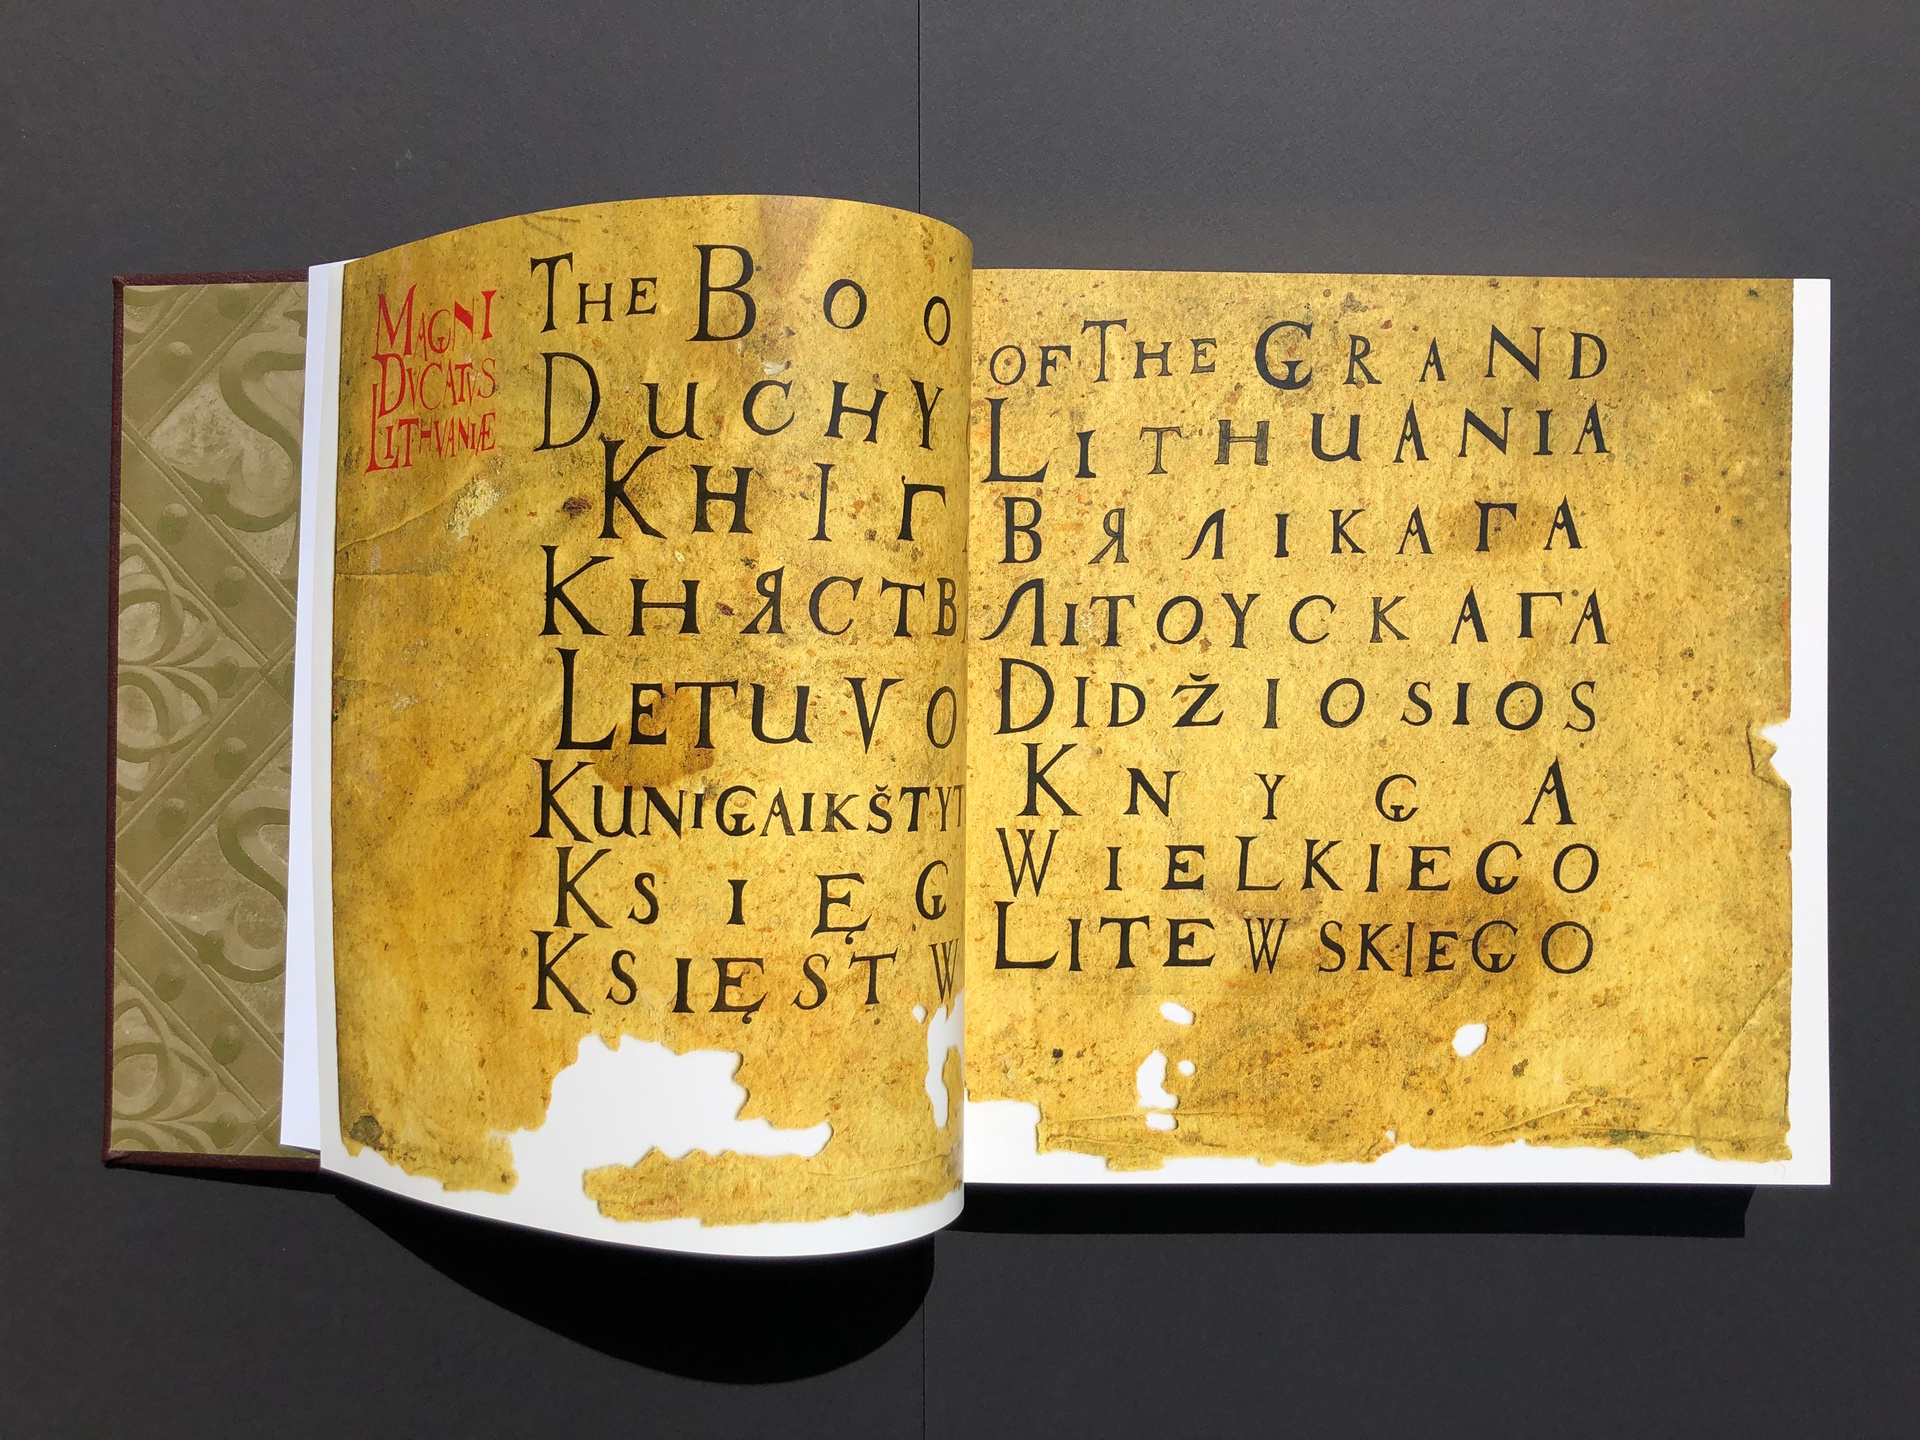 MAGNI
DVCATVS
LITHVANIÆ
THE BOO
DUCHY
КНІГ
КНЯСТВ
LETUVO
KUNIGAIKŠTYT
KSIĘG
KSIĘSTW
OF THE GRAND
LITHUANIA
ВЯЛІКАГА
ЛІТОУСКАГА
DIDŽIOSIOS
KNYGA
WIELKIEGO
LITEWSKIEGO